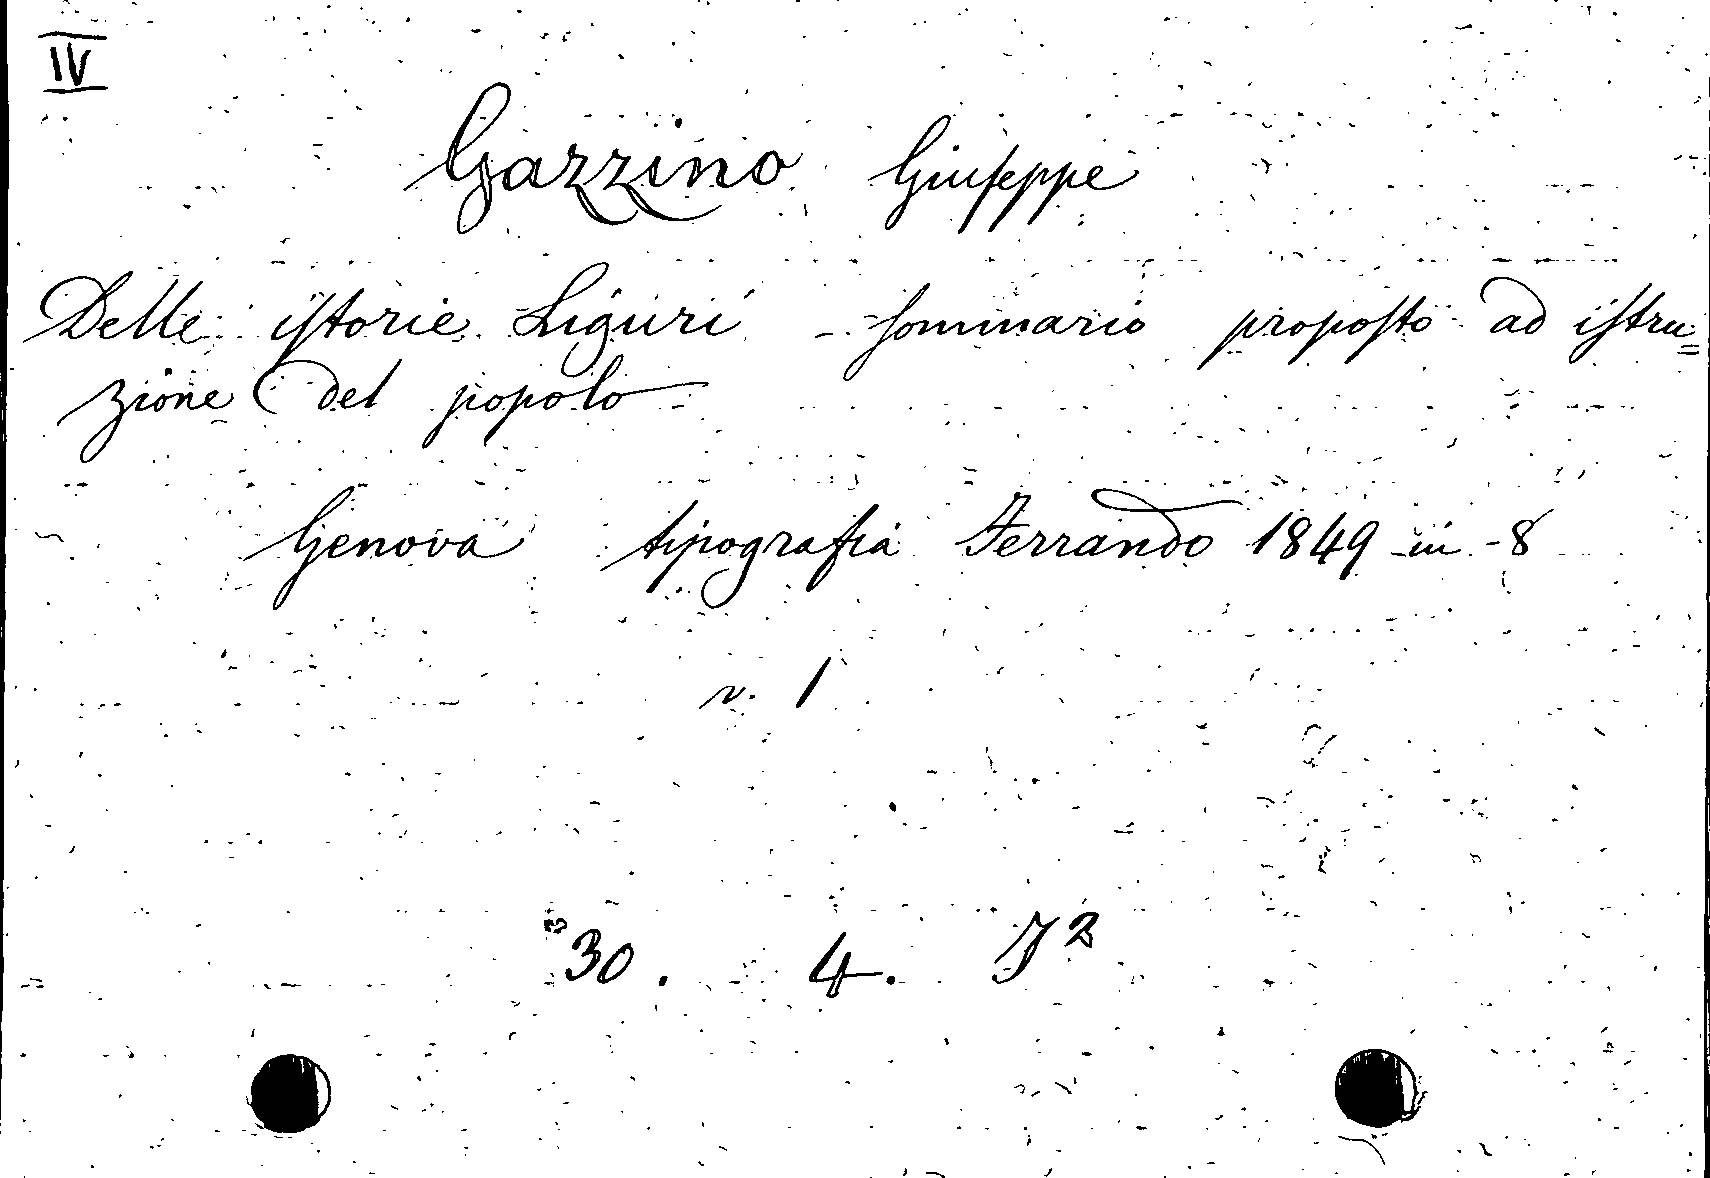 IV
Gazzino Giuseppe
Delle istorie Liguri - sommario proposto ad istru=
zione del popolo
Genova tipografia Ferrando 1849 in -8
v. 1
30. 4. J²